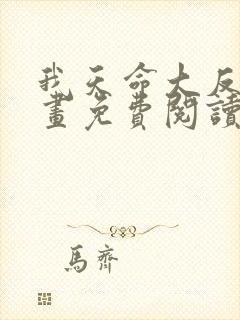 我天命大反
畫免費閱讀
馬齊